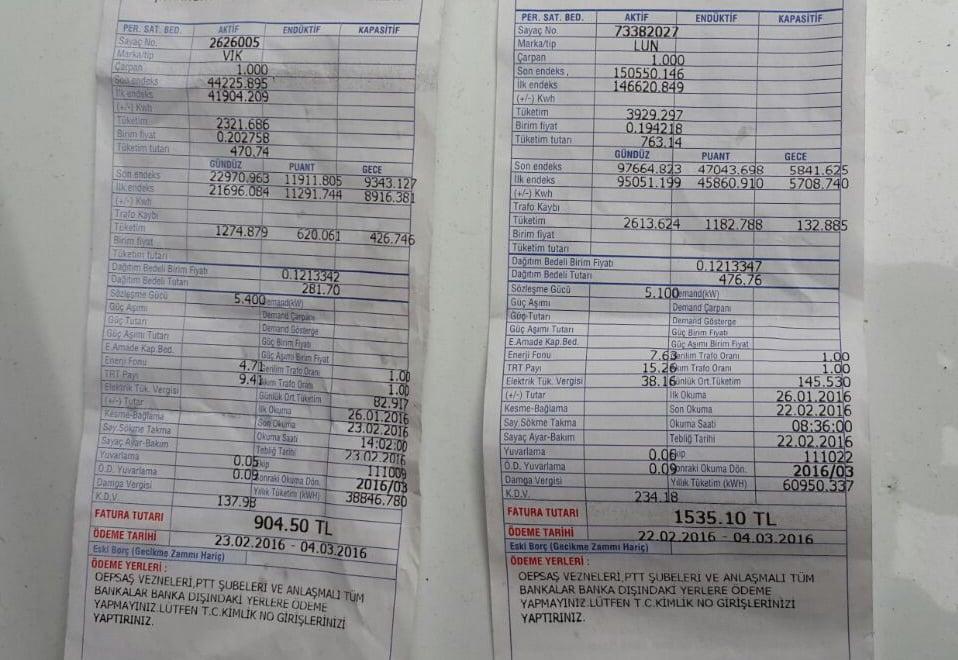 PER. SAT. BED. AKTİF ENDÜKTİF KAPASİTİF
Sayaç No. 2626005
Marka/tip VIK
Çarpan 1.000
Son endeks 44225.895
İlk endeks 41904.209
(+/-) Kwh
Tüketim 2321.686
Birim fiyat 0.202758
Tüketim tutarı 470.74
GÜNDÜZ PUANT GECE
Son endeks 22970.963 11911.805 9343.127
İlk endeks 21696.084 11291.744 8916.381
(+/-) Kwh
Trafo Kaybı
Tüketim 1274.879 620.061 426.746
Birim fiyat
Tüketim tutarı
Dağıtım Bedeli Birim Fiyatı 0.1213342
Dağıtım Bedeli Tutarı 281.70
Sözleşme Gücü 5.400 Demand(kW)
Güç Aşımı Demand Çarpanı
Güç Tutarı Demand Gösterge
Güç Aşımı Tutarı Güç Birim Fiyatı
E.Amade Kap.Bed. Güç Aşımı Birim Fiyat
Enerji Fonu 4.71 Gerilim Trafo Oranı 1.00
TRT Payı 9.41 Akım Trafo Oranı 1.00
Elektrik Tük. Vergisi Günlük Ort.Tüketim 82.917
(+/-) Tutar İlk Okuma 26.01.2016
Kesme-Bağlama Son Okuma 23.02.2016
Say.Sökme Takma Okuma Saati 14:02:00
Sayaç Ayar-Bakım Tebliğ Tarihi 23.02.2016
Yuvarlama 0.05 Ekip 111009
Ö.D. Yuvarlama 0.09 Sonraki Okuma Dön. 2016/03
Damga Vergisi Yıllık Tüketim (kWH) 38846.780
K.D.V. 137.98
FATURA TUTARI 904.50 TL
ÖDEME TARİHİ 23.02.2016 - 04.03.2016
Eski Borç (Gecikme Zammı Hariç)
ÖDEME YERLERİ :
OEPSAŞ VEZNELERİ,PTT ŞUBELERİ VE ANLAŞMALI TÜM
BANKALAR BANKA DIŞINDAKİ YERLERE ÖDEME
YAPMAYINIZ.LÜTFEN T.C.KİMLİK NO GİRİŞLERİNİZİ
YAPTIRINIZ.
PER. SAT. BED. AKTİF ENDÜKTİF KAPASİTİF
Sayaç No. 73382027
Marka/tip LUN
Çarpan 1.000
Son endeks 150550.146
İlk endeks 146620.849
(+/-) Kwh
Tüketim 3929.297
Birim fiyat 0.194218
Tüketim tutarı 763.14
GÜNDÜZ PUANT GECE
Son endeks 97664.823 47043.698 5841.625
İlk endeks 95051.199 45860.910 5708.740
(+/-) Kwh
Trafo Kaybı
Tüketim 2613.624 1182.788 132.885
Birim fiyat
Tüketim tutarı
Dağıtım Bedeli Birim Fiyatı 0.1213347
Dağıtım Bedeli Tutarı 476.76
Sözleşme Gücü 5.100 Demand(kW)
Güç Aşımı Demand Çarpanı
Güç Tutarı Demand Gösterge
Güç Aşımı Tutarı Güç Birim Fiyatı
E.Amade Kap.Bed. Güç Aşımı Birim Fiyat
Enerji Fonu 7.63 Gerilim Trafo Oranı 1.00
TRT Payı 15.26 Akım Trafo Oranı 1.00
Elektrik Tük. Vergisi 38.16 Günlük Ort.Tüketim 145.530
(+/-) Tutar İlk Okuma 26.01.2016
Kesme-Bağlama Son Okuma 22.02.2016
Say.Sökme Takma Okuma Saati 08:36:00
Sayaç Ayar-Bakım Tebliğ Tarihi 22.02.2016
Yuvarlama 0.06 Ekip 111022
Ö.D. Yuvarlama 0.09 Sonraki Okuma Dön. 2016/03
Damga Vergisi Yıllık Tüketim (kWH) 60950.337
K.D.V. 234.18
FATURA TUTARI 1535.10 TL
ÖDEME TARİHİ 22.02.2016 - 04.03.2016
Eski Borç (Gecikme Zammı Hariç)
ÖDEME YERLERİ :
OEPSAŞ VEZNELERİ,PTT ŞUBELERİ VE ANLAŞMALI TÜM
BANKALAR BANKA DIŞINDAKİ YERLERE ÖDEME
YAPMAYINIZ.LÜTFEN T.C.KİMLİK NO GİRİŞLERİNİZİ
YAPTIRINIZ.